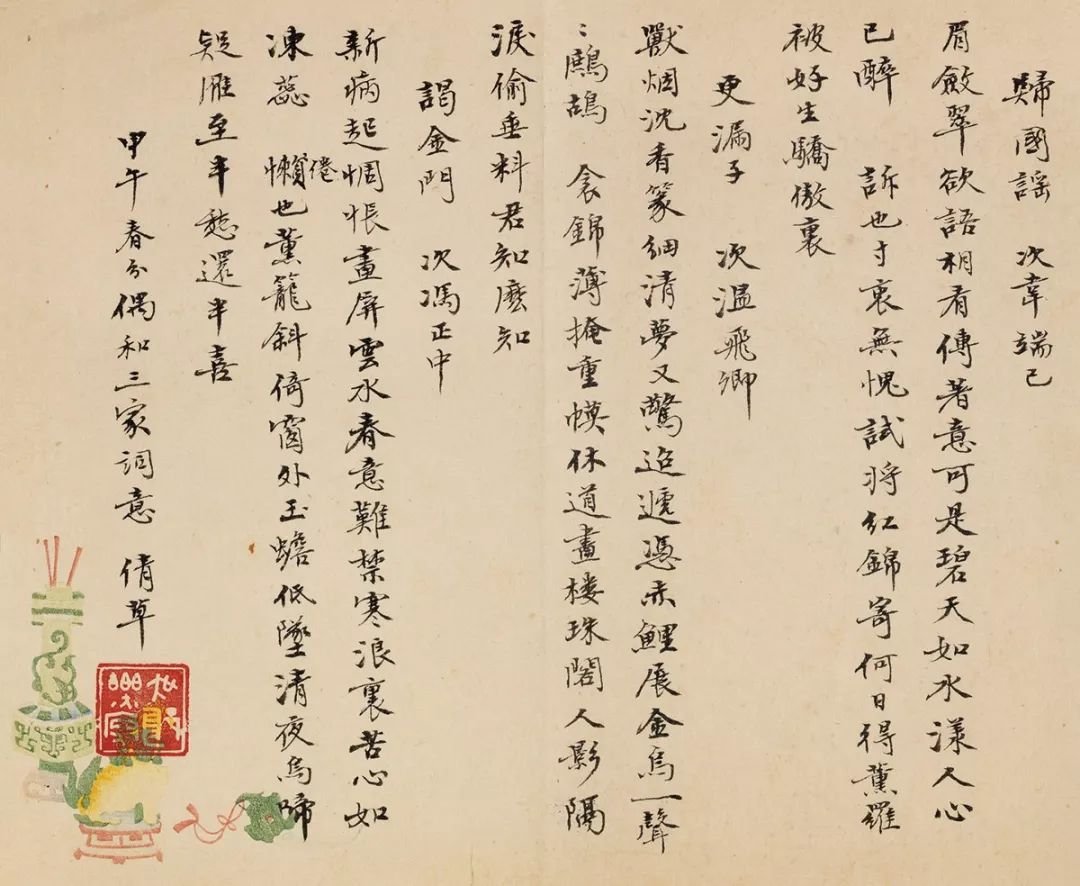 歸國謠　次韋端己
眉斂翠欲語相看傳著意可是碧天如水漾人心
已醉　訴也寸衷無愧試將紅錦寄何日得薰羅
被好生驕傲裏
更漏子　次溫飛卿
獸烟沈香篆細清夢又驚迢遞憑赤鯉展金烏一聲
〻鷓鴣　衾錦薄掩重幙休道畫楼珠閣人影隔
淚偷垂料君知麽知
謁金門　次馮正中
新病起惆悵畫屏雲水春意難禁寒浪裏苦心如
凍蕊　懶倦也薰籠斜倚窗外玉蟾低墜清夜烏啼
疑雁至半愁還半喜
甲午春分偶和三家詞意　倩草